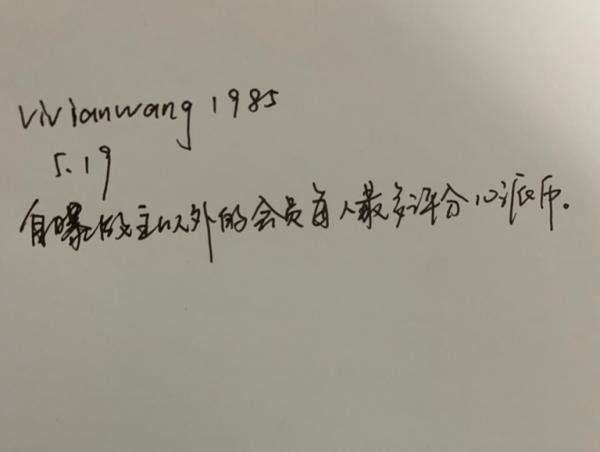 vivianwang1985
5.19
自曝做主以外的会员每人最多评分10派币。